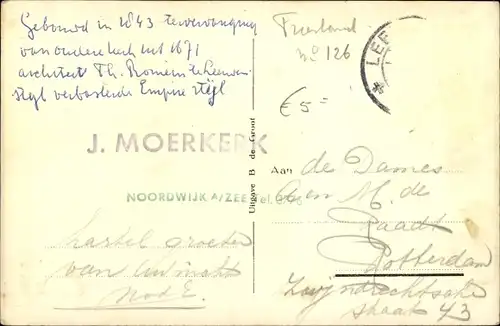 Gebouwd in 1843 ter vervanging
van oudere kerk uit 1671
architect Th. Romein te Leeuwen
stijl verbasterde Empire stijl
Friesland
No 126
€ 5=
* LEE
J. MOERKERK
NOORDWIJK A/ZEE
Uitgave B de Groot
Aan
de Dames
A en M. de
Raadt
Rotterdam
Zwijndrechtsche
straat 43
hartel groeten
van